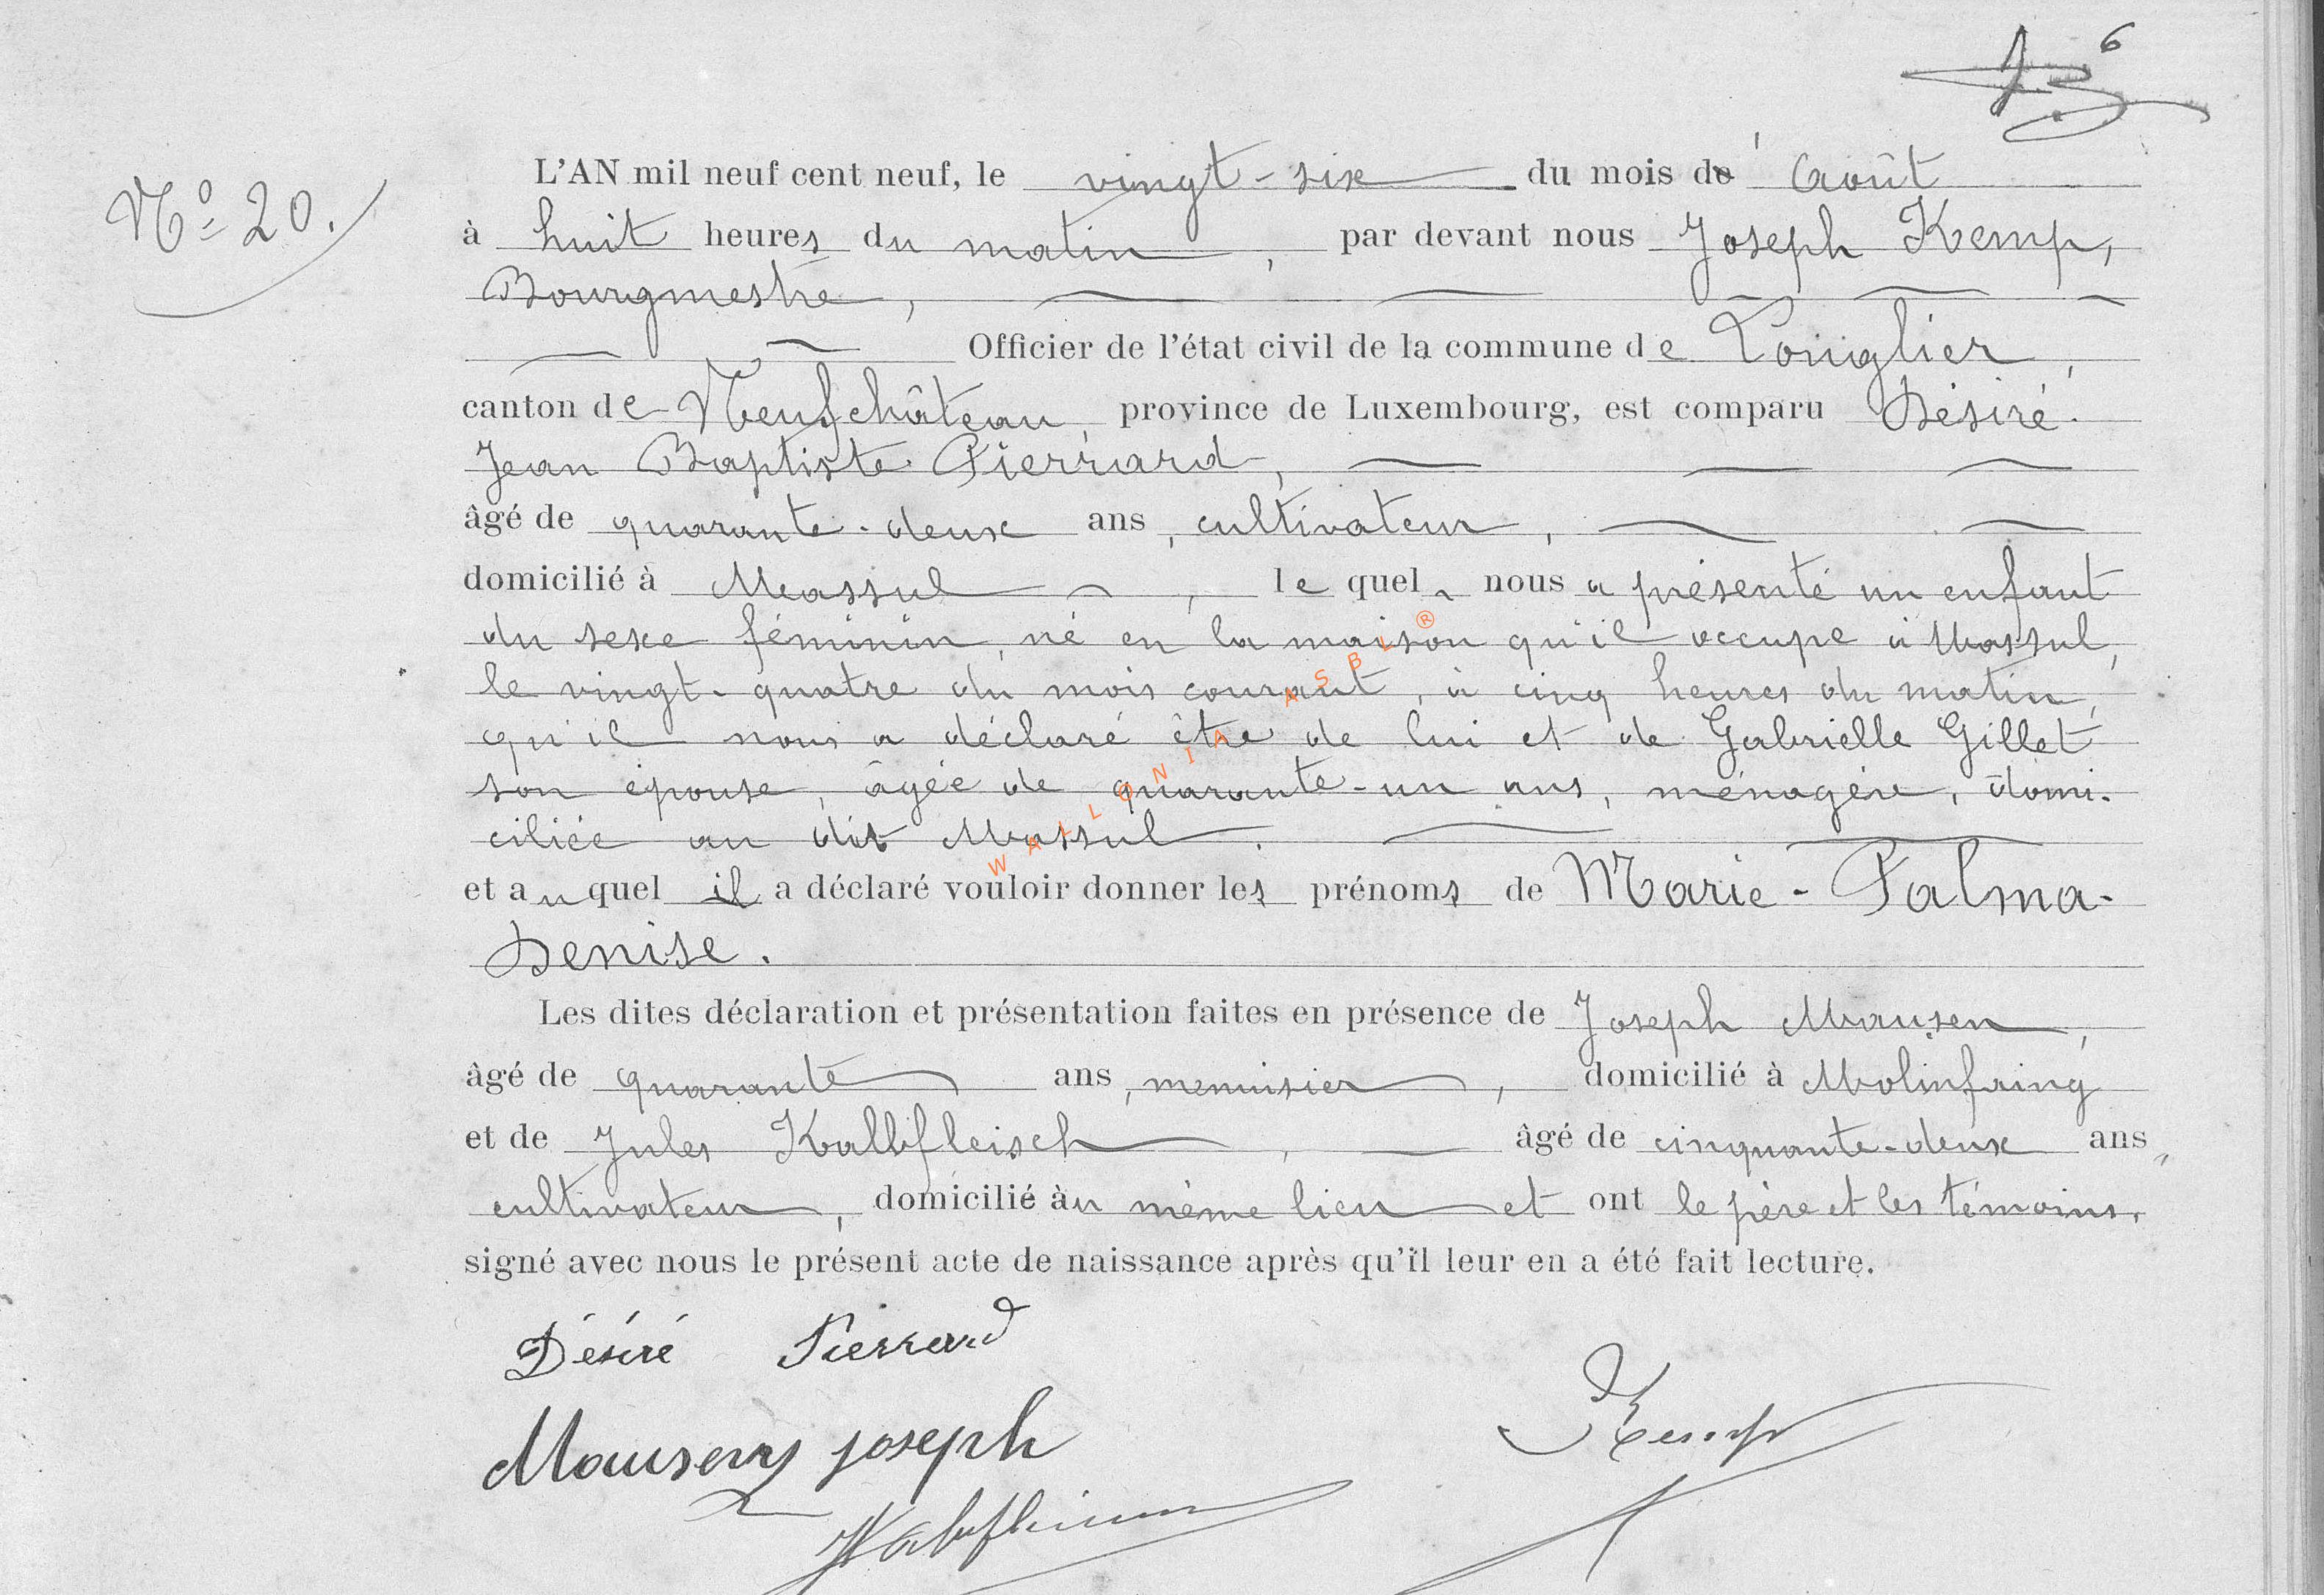 6
N° 20.
L'AN mil neuf cent neuf, le vingt-six du mois d'Août
à huit heures du matin, par devant nous Joseph Kemp,
Bourgmestre,
Officier de l'état civil de la commune de Longlier,
canton de Neufchâteau, province de Luxembourg, est comparu Désiré
Jean Baptiste Pierrard,
âgé de quarante-deux ans, cultivateur,
domicilié à Massul, le quel nous a présenté un enfant
du sexe féminin, né en la maison qu'il occupe à Massul,
le vingt-quatre du mois courant, à cinq heures du matin,
qu'il nous a déclaré être de lui et de Gabrielle Gillet
son épouse, âgée de quarante-un ans, ménagère, domi-
ciliée au dit Massul.
et au quel il a déclaré vouloir donner les prénoms de Marie-Palma-
Denise.
Les dites déclaration et présentation faites en présence de Joseph Mausen,
âgé de quarante ans, menuisier, domicilié à Molinfaing
et de Jules Kalbfleisch, âgé de cinquante-deux ans,
cultivateur, domicilié au même lieu et ont le père et les témoins,
signé avec nous le présent acte de naissance après qu'il leur en a été fait lecture.
Désiré Pierrard
Kemp
Mausen Joseph
WALLONIA ASBL ®